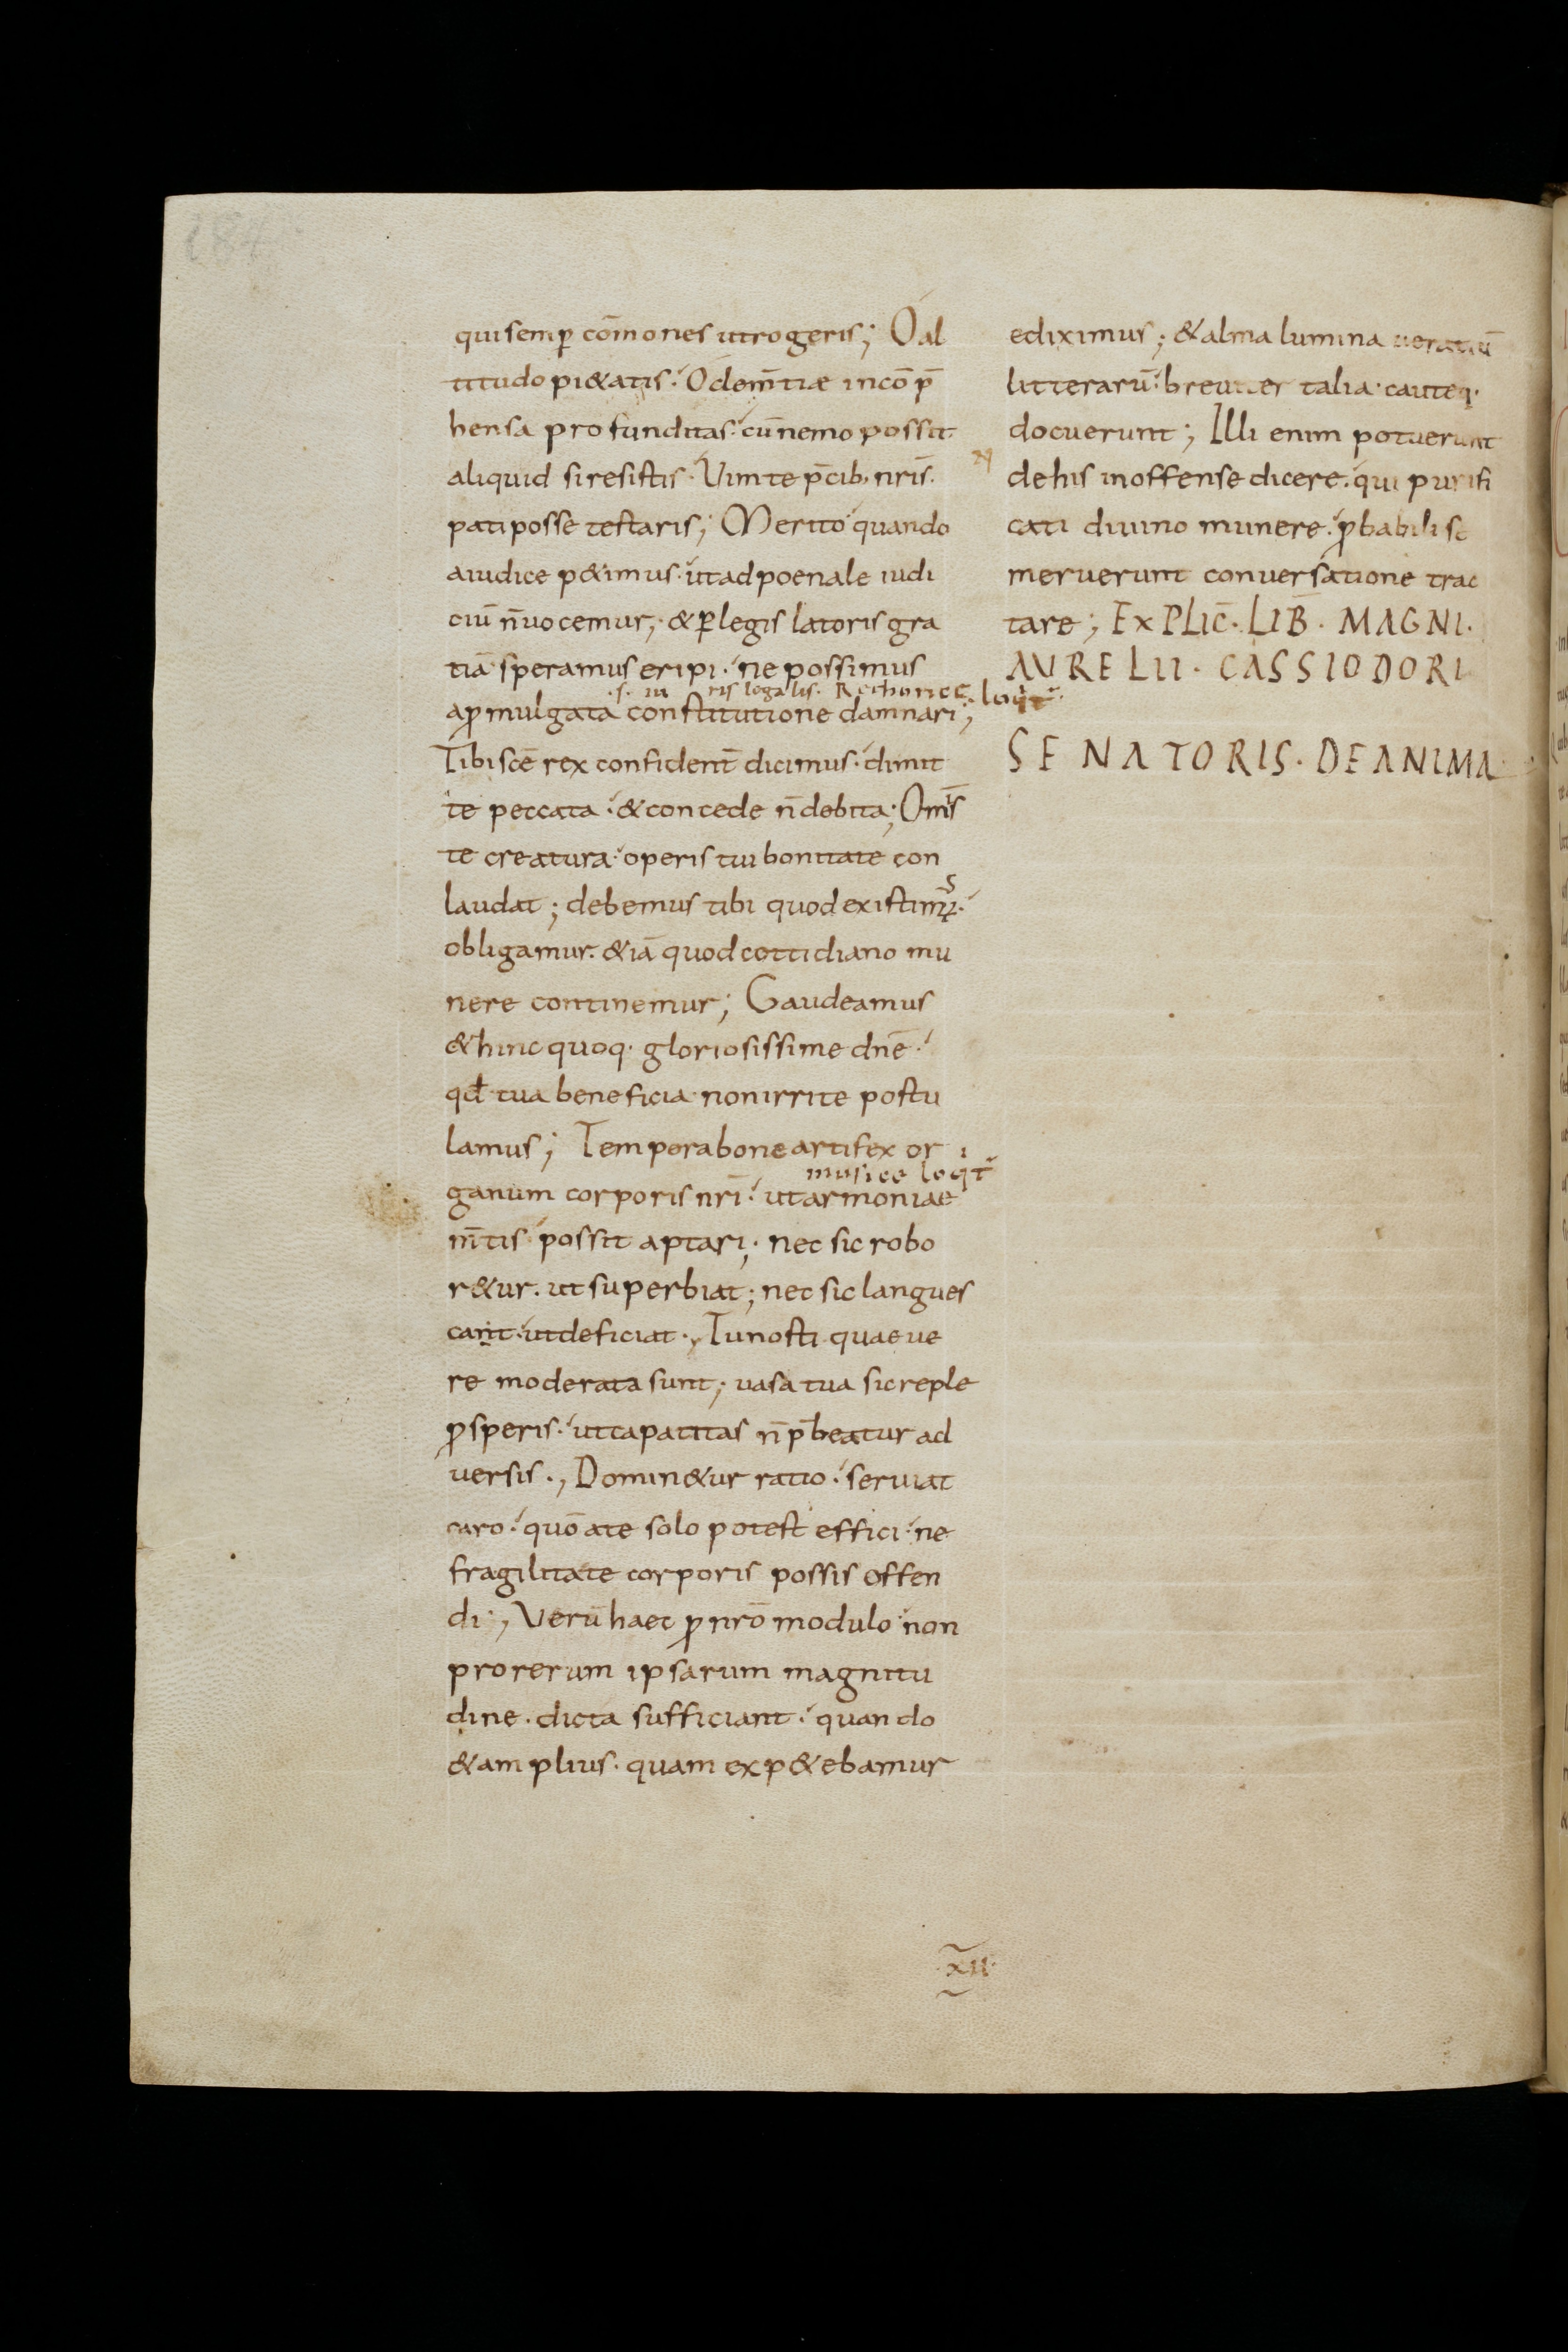 qui semp̄ com̄ones utrogeris; O al
titudo pi&atis· O dem̄tiae incōp̄
hensa profunditas· cū nemo possit
aliquid si resistis· Vim te p̄cib; nr̄is·
pati posse testaris; Merito quando
a iudice p&imus· ut ad poenale iudi
ciū n̄ uocemur; & p̄ legis latoris gra
tiā speramus eripi· ne possimus
·s· iu ris legalis· Rethorice loq̄t̄
a p̄mulgata constitutione damnari;
Tibi sc̄e rex confident̄ dicimus· dimit
te peccata· & concede n̄ debita; Om̄s
te creatura· operis tui bonitate con
laudat; debemus tibi quod existim̄s
obligamur· &iā quod cottidiano mu
nere continemur; Gaudeamus
& hinc quoq· gloriosissime dn̄e·
qđ tua beneficia non irrite postu
lamus; Tempera bone artifex or
musice loq̄t̄
ganum corporis nr̄i· ut armoniae
m̄tis possit aptari; nec sic robo
r&ur· ut superbiat; nec sic langues
cant· ut deficiat·, Tu nosti quae ue
re moderata sunt; uasa tua sic reple
p̄speris· ut capacitas n̄ p̄beatur ad
uersis·, Domin&ur ratio· seruiat
caro· quō a te solo potest effici· ne
fragilitate corporis possis offen
di·, Verū haec p̄ nr̄o modulo non
pro rerum ipsarum magnitu
dine· dicta sufficiant· quando
& amplius· quam exp&ebamur
ediximus; & alma lumina ueraciū
litterarū· breuiter talia· cauteq·
docuerunt; Illi enim potuerunt
de his inoffense dicere· qui purifi
cati diuino munere· p̄babili se
meruerunt conuersatione trac
tare; EXPLIC̄· LIB̄· MAGNI·
AURELII· CASSIODORI
SENATORIS· DE ANIMA
·XII·